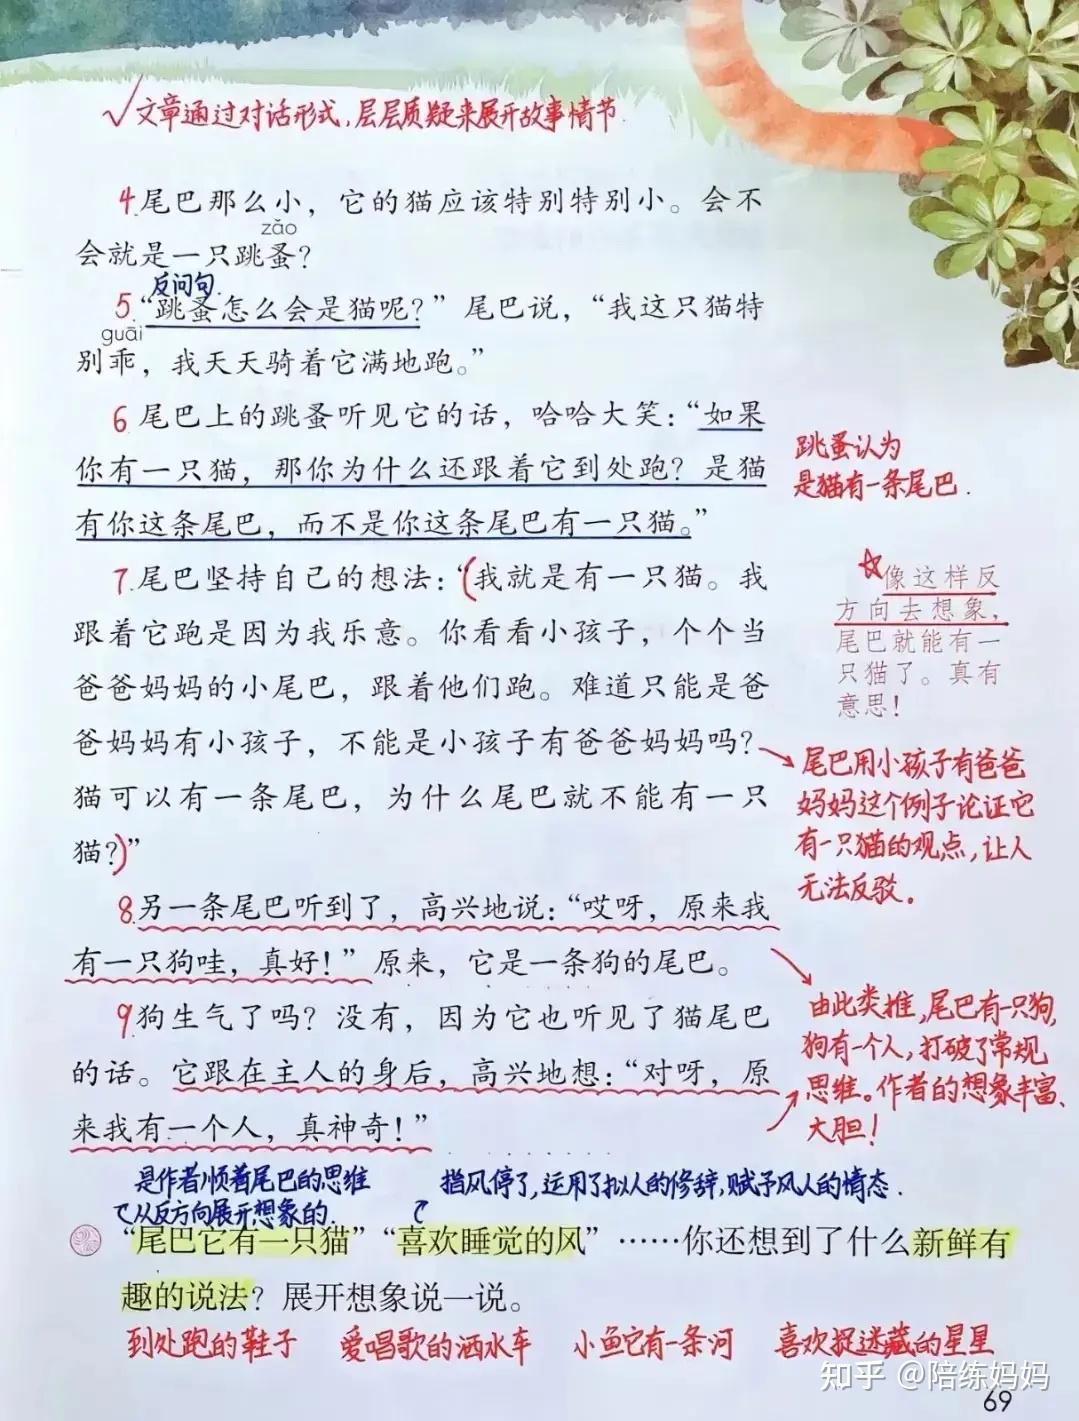 √文章通过对话形式,层层质疑来展开故事情节.
4尾巴那么小，它的猫应该特别特别小。会不
zǎo
会就是一只跳蚤？
反问句.
5“跳蚤怎么会是猫呢？”尾巴说，“我这只猫特
guāi
别乖，我天天骑着它满地跑。”
6尾巴上的跳蚤听见它的话，哈哈大笑：“如果
你有一只猫，那你为什么还跟着它到处跑？是猫
有你这条尾巴，而不是你这条尾巴有一只猫。”
跳蚤认为
是猫有一条尾巴.
7.尾巴坚持自己的想法：“(我就是有一只猫。我
跟着它跑是因为我乐意。你看看小孩子，个个当
爸爸妈妈的小尾巴，跟着他们跑。难道只能是爸
爸妈妈有小孩子，不能是小孩子有爸爸妈妈吗？
猫可以有一条尾巴，为什么尾巴就不能有一只
猫？)”
☆像这样反
方向去想象，
尾巴就能有一
只猫了。真有
意思！
尾巴用小孩子有爸爸
妈妈这个例子论证它
有一只猫的观点,让人
无法反驳.
8.另一条尾巴听到了，高兴地说：“哎呀，原来我
有一只狗哇，真好！”原来，它是一条狗的尾巴。
9狗生气了吗？没有，因为它也听见了猫尾巴
的话。它跟在主人的身后，高兴地想：“对呀，原
来我有一个人，真神奇！”
由此类推,尾巴有一只狗,
狗有一个人,打破了常规
思维。作者的想象丰富、
大胆!
是作者顺着尾巴的思维
从反方向展开想象的.
指风停了,运用了拟人的修辞,赋予风人的情态.
“尾巴它有一只猫”“喜欢睡觉的风”……你还想到了什么新鲜有
趣的说法？展开想象说一说。
到处跑的鞋子 爱唱歌的洒水车 小鱼它有一条河 喜欢捉迷藏的星星
知乎 @陪练妈妈
69